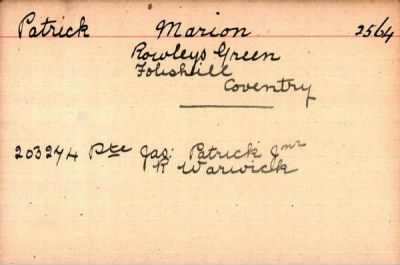 Patrick Marion 25/64
Rowleys Green
Foleshill
Coventry
203274 Pte Jas: Patrick Jnr
R Warwick